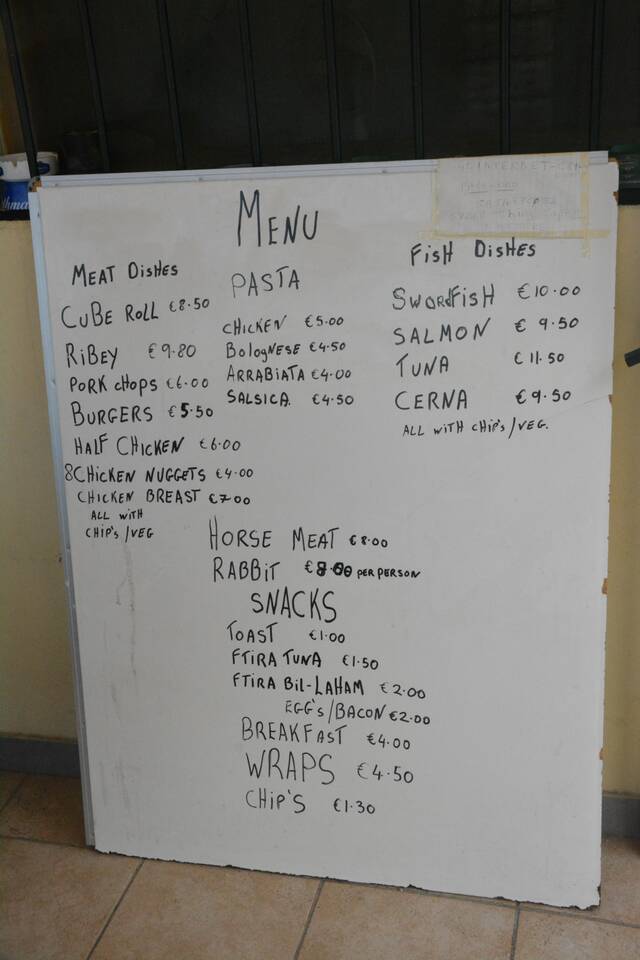 MENU
MEAT DISHES
CUBE ROLL €8.50
RIBEY €9.80
PORK CHOPS €6.00
BURGERS €5.50
HALF CHICKEN €6.00
8CHICKEN NUGGETS €4.00
CHICKEN BREAST €7.00
ALL WITH
CHIP'S/VEG
PASTA
CHICKEN €5.00
BologNESE €4.50
ARRABIATA €4.00
SALSICA. €4.50
FISH DISHES
SWORDFISH €10.00
SALMON € 9.50
TUNA €11.50
CERNA €9.50
ALL WITH CHIP'S/VEG.
HORSE MEAT €8.00
RABBIT PER PERSON
SNACKS
TOAST €1.00
FTIRA TUNA €1.50
FTIRA BIL-LAHAM €2.00
EGG'S/BACON €2.00
BREAKFAST €4.00
WRAPS €4.50
CHIP'S €1.30